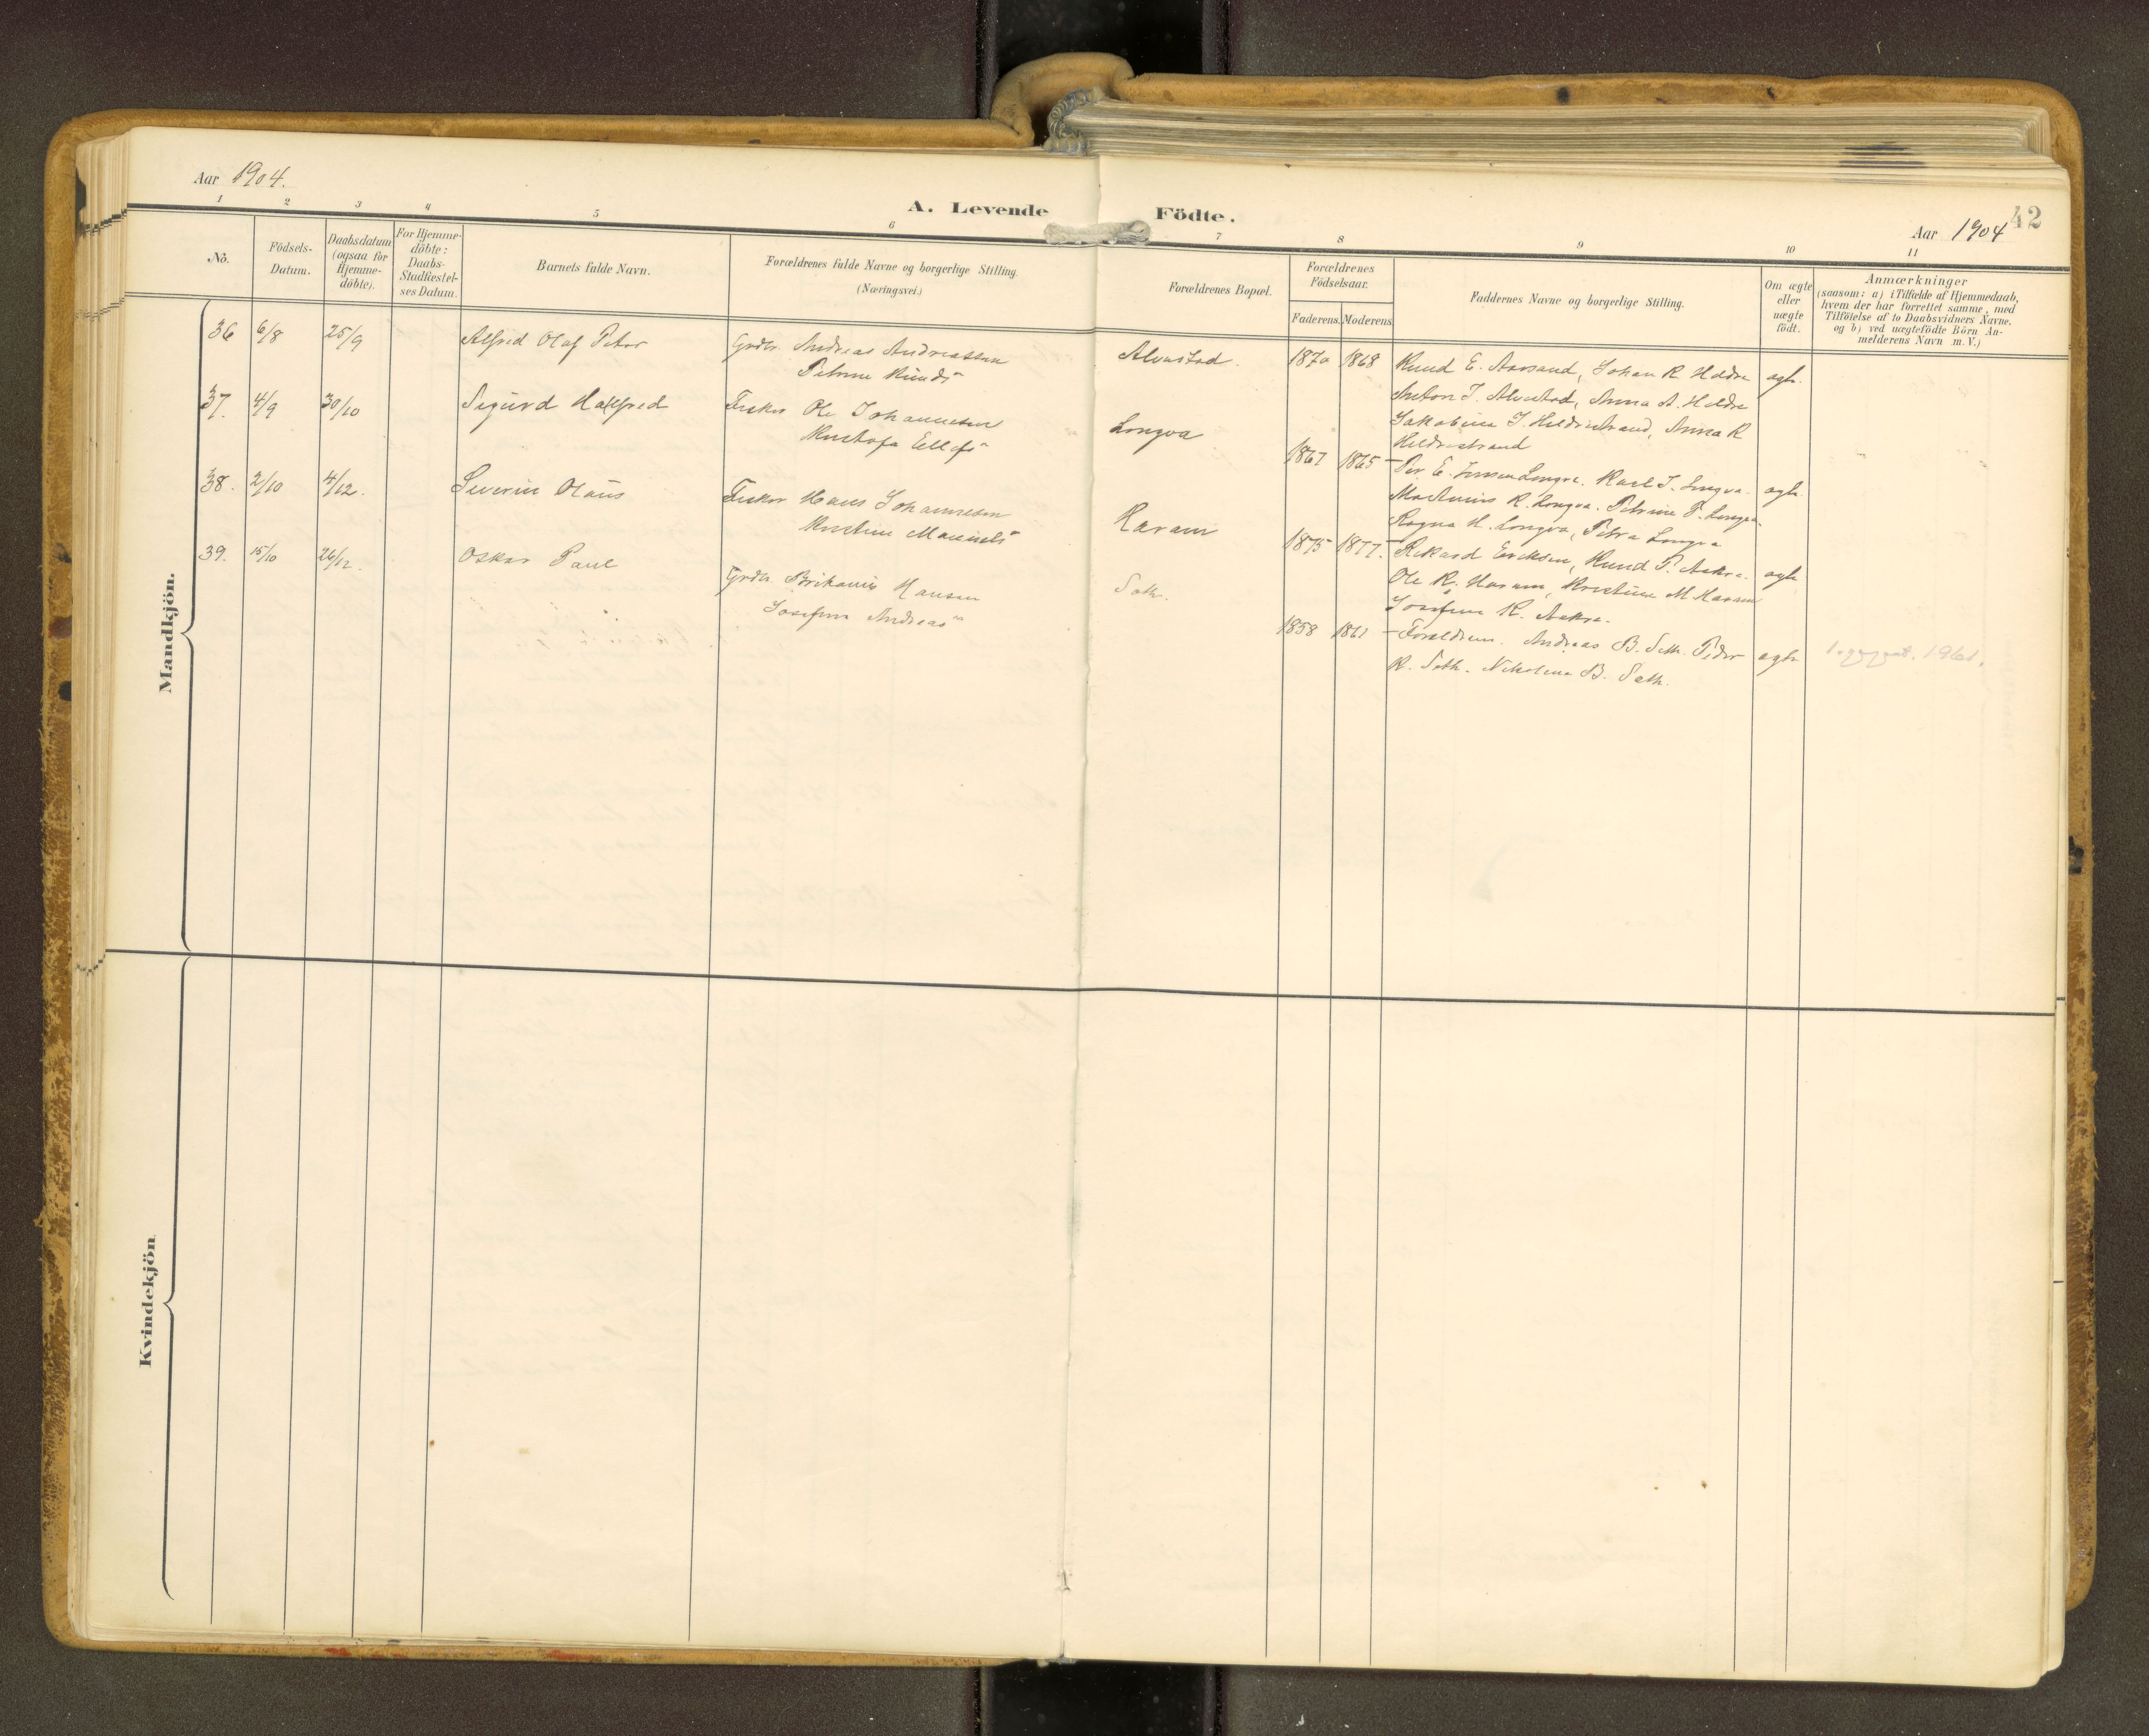 Aar 1904.
A. Levende Födte.
Aar 1904
42
1 2 3 4 5 6 7 8 9 10 11
No. Födsels-Datum. Daabsdatum (ogsaa for Hjemme-döbte). For Hjemme-döbte: Daabs-Stadfæstel-ses Datum. Barnets fulde Navn. Forældrenes fulde Navne og borgerlige Stilling. (Næringsvei.) Forældrenes Bopæl. Forældrenes Födselsaar. Faderens. Moderens. Faddernes Navne og borgerlige Stilling. Om ægte eller uægte födt. Anmærkninger (saasom: a) i Tilfælde af Hjemmedaab, hvem der har forrettet samme, med Tilföielse af to Daabsvidners Navne, og b) ved uægtefödte Börn An-melderens Navn m. V.)
Mandkjön.
36 6/8 25/9 Alfred Olaf Peter Grdbr. Andreas Andreassen Alvestad. 1870 1868 Knud E. Aarsand, Johan R Heldre ægte.
Petrine Knuds-
Anton J. Alvestad, Anna A. Heldre
Jakobine J. Hildrestrand, Anna R
Hildrestrand
37. 4/9 30/10 Sigurd Hallfred Fisker Ole Johannesen Longva 1867 1865 Per E. Longva. Karl J. Longva. ægte.
Ellefs-
Martinus R. Longva. Petrine P. Longva.
Ragna H. Longva, Petra Longva
38. 2/10 4/12. Severin Olaus Fisker Hans Johannesen Haram 1875 1877. Rikard Eriksen, Knud P. Aakre. ægte
Kristine
Ole R. Haram, Kristine M Haram
Josefine R. Aakre.
39. 15/10 26/12. Oskar Paul Grdbr. Hansen Sæth. 1858 1861 Forældrene. Andreas B. Sæth. Peder ægte 1961.
Josefine Andreas-
R. Sæth. Nikoline B. Sæth.
Kvindekjön